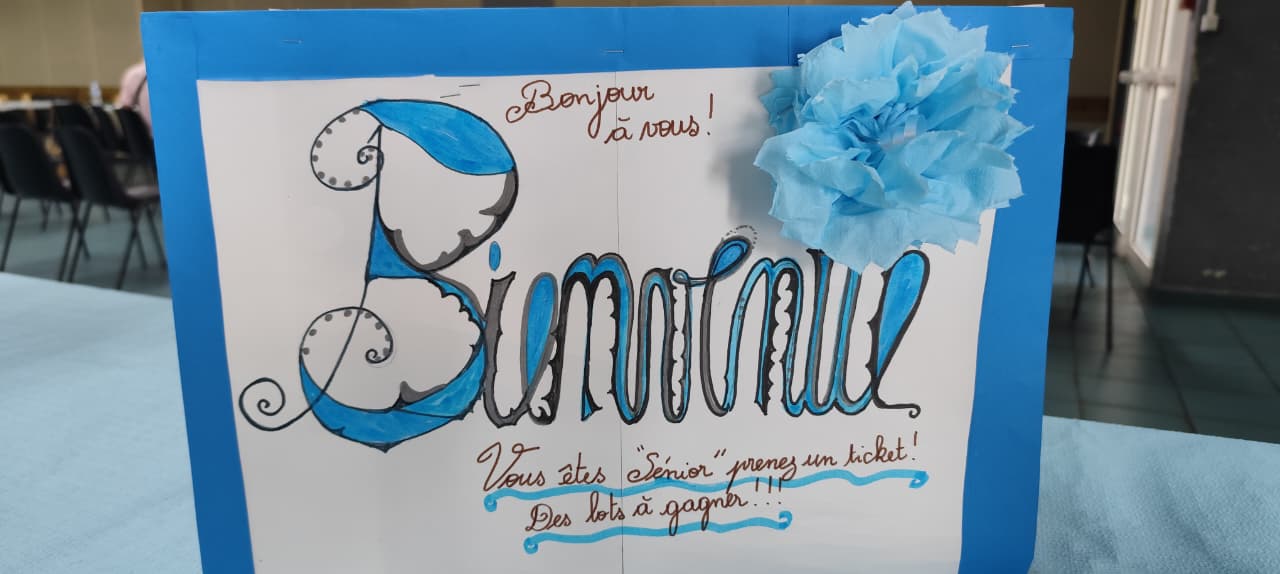 Bonjour
à vous!
Bienvenue
Vous êtes "Sénior" prenez un ticket!
Des lots à gagner!!!